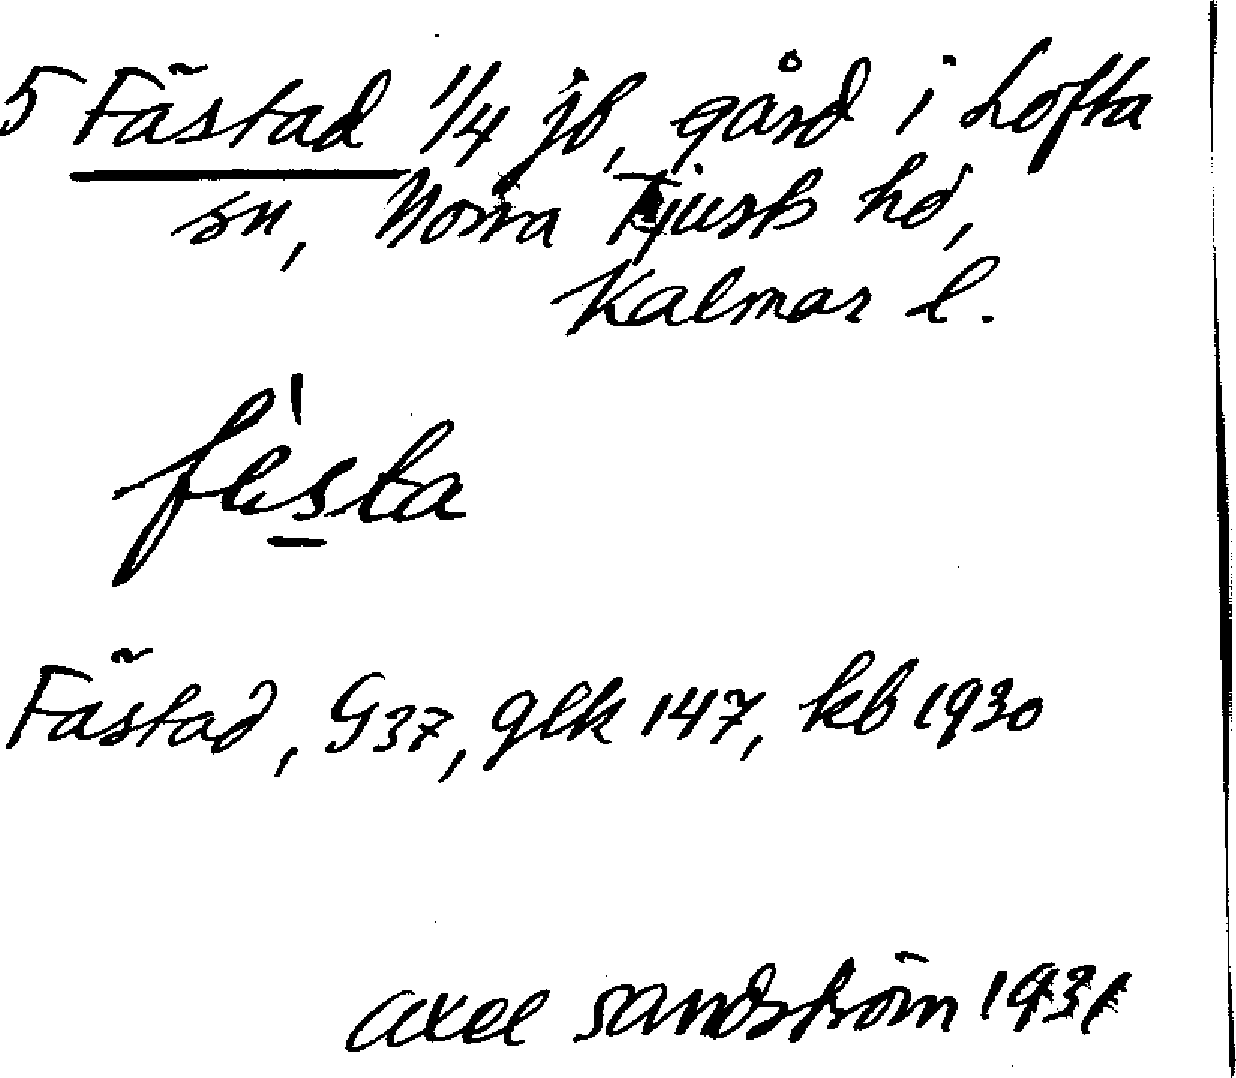 5 Fästad 1/4 jb, gård i Lofta
sn, Norra Tjusts hd,
Kalmar l.
fèsta
Fästad, G37, glk 147, kb 1930
Axel Sandström 1931